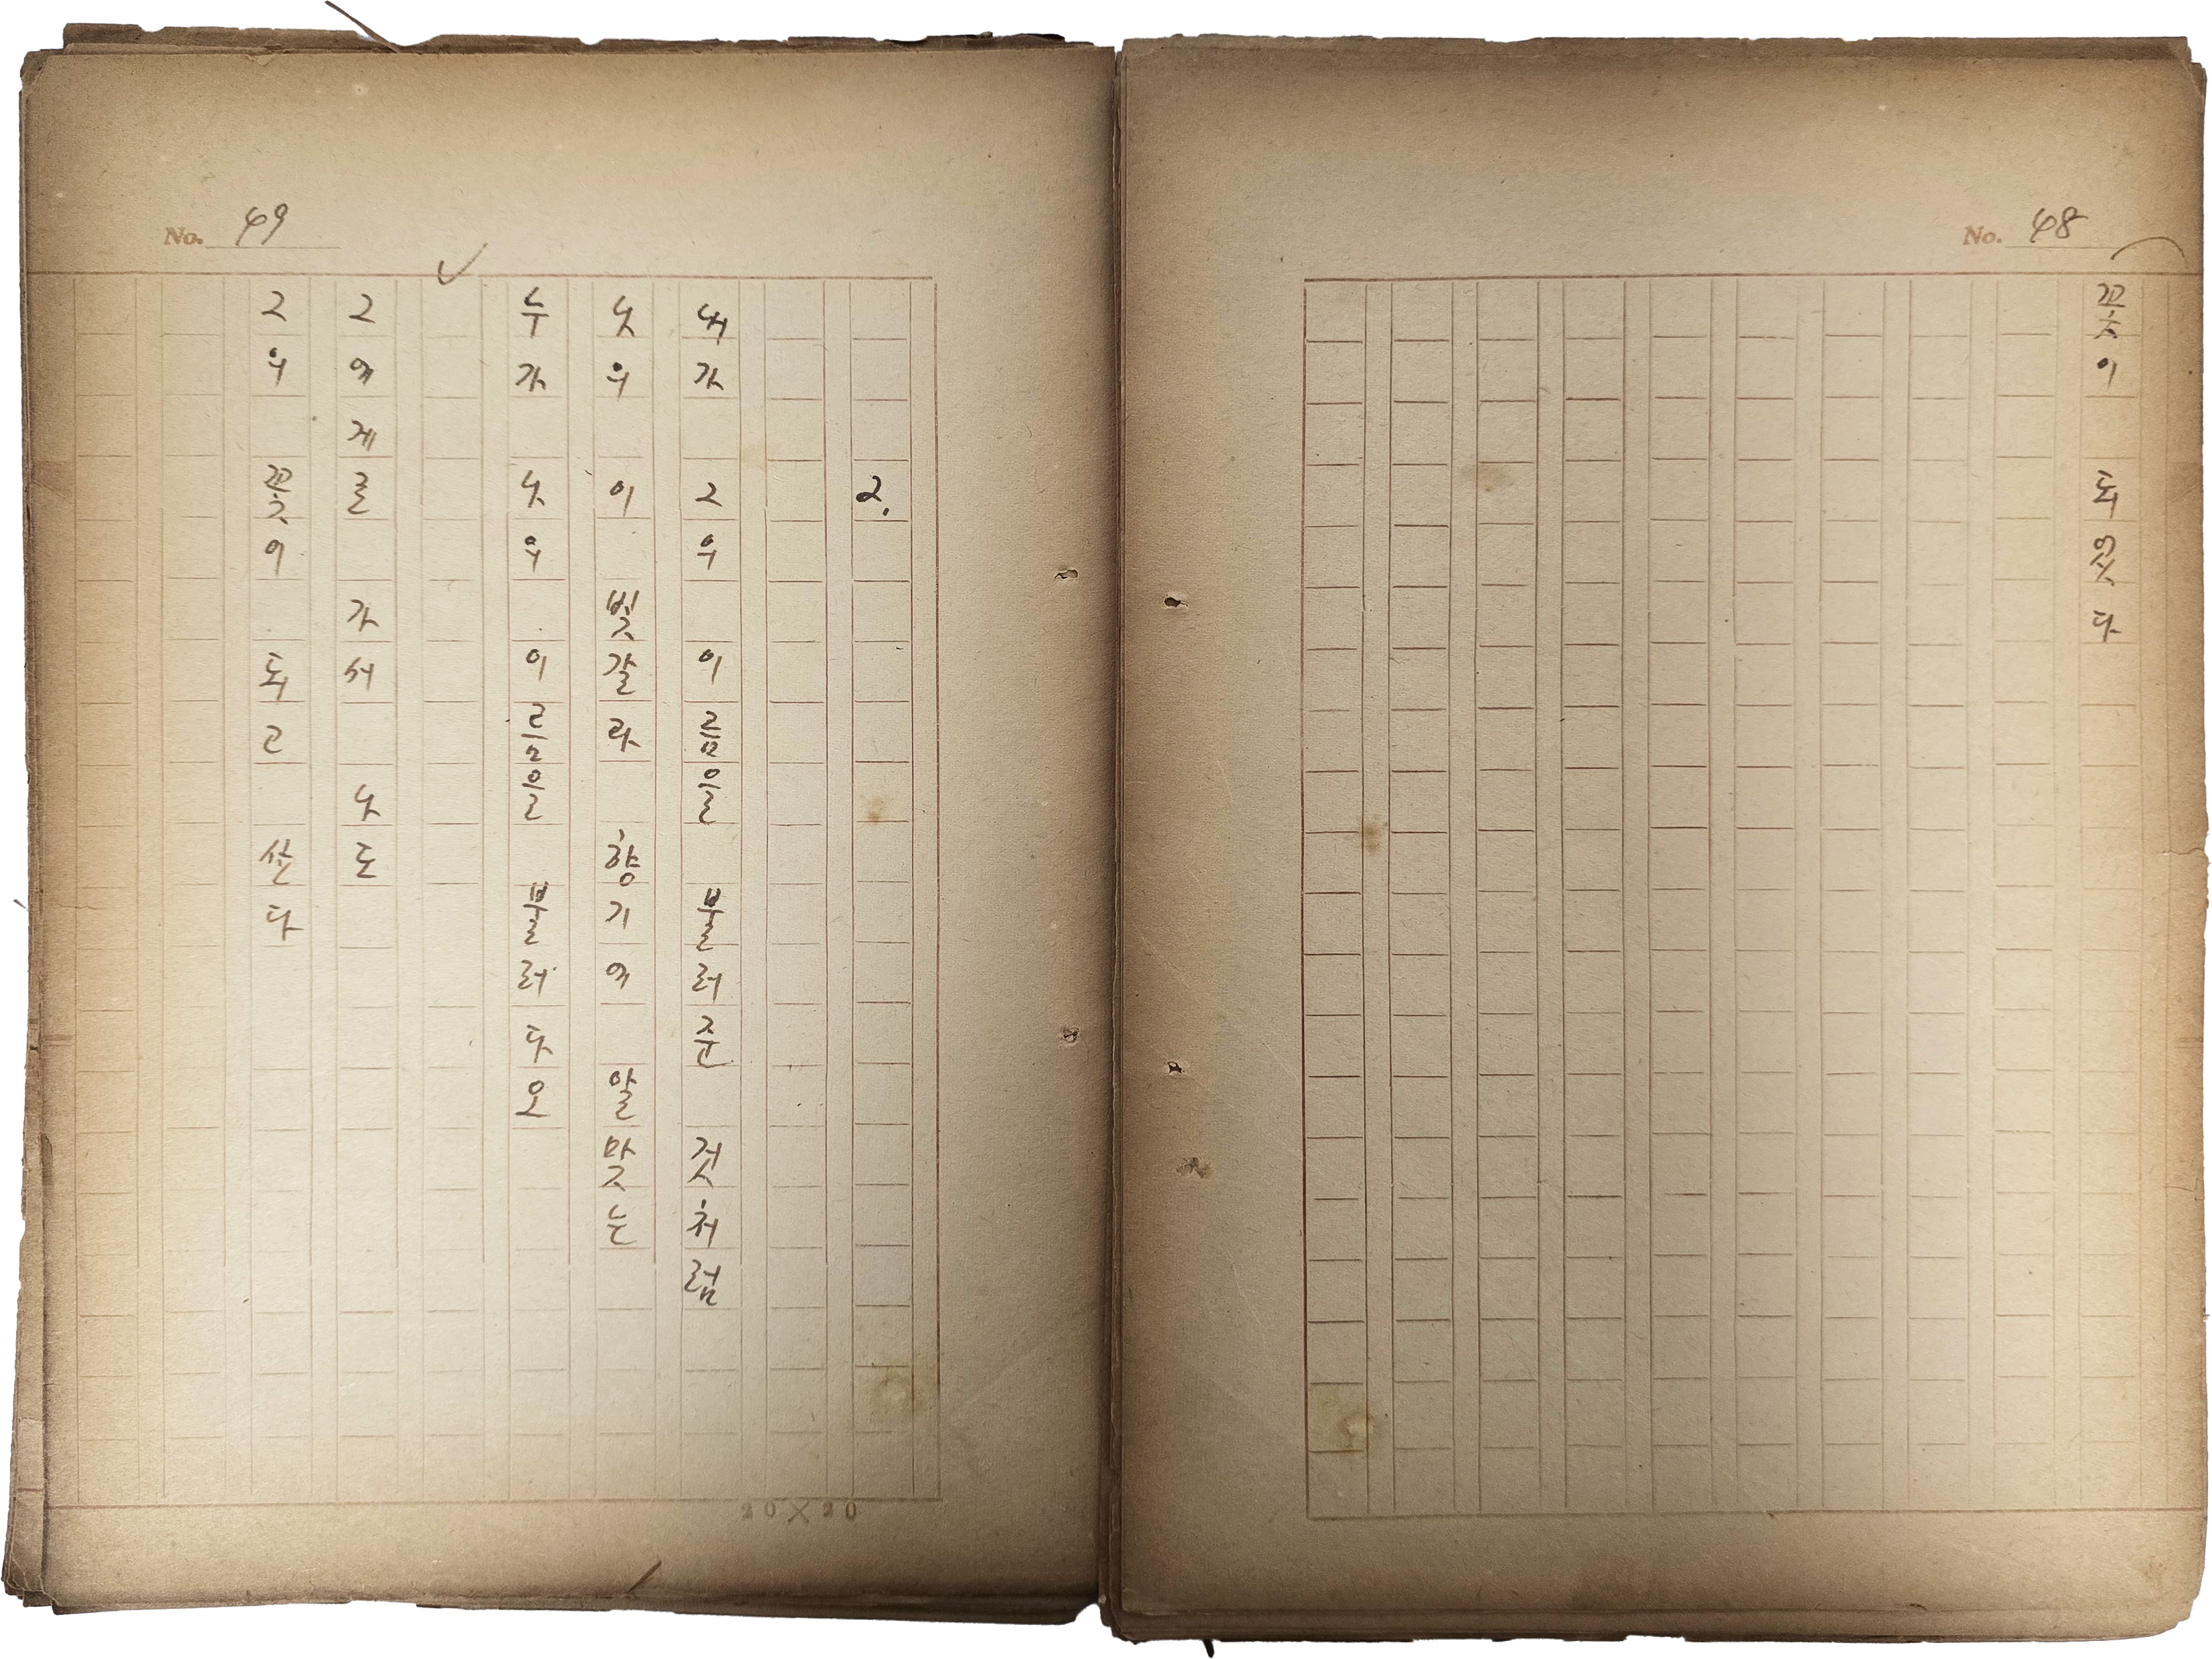 No. 48
꽃이 되었다
No. 49
2.
내가 그의 이름을 불러준 것처럼
나의 이 빛갈과 향기에 알맞는
누가 나의 이름을 불러다오
그에게로 가서 나도
그의 꽃이 되고 싶다
20×20